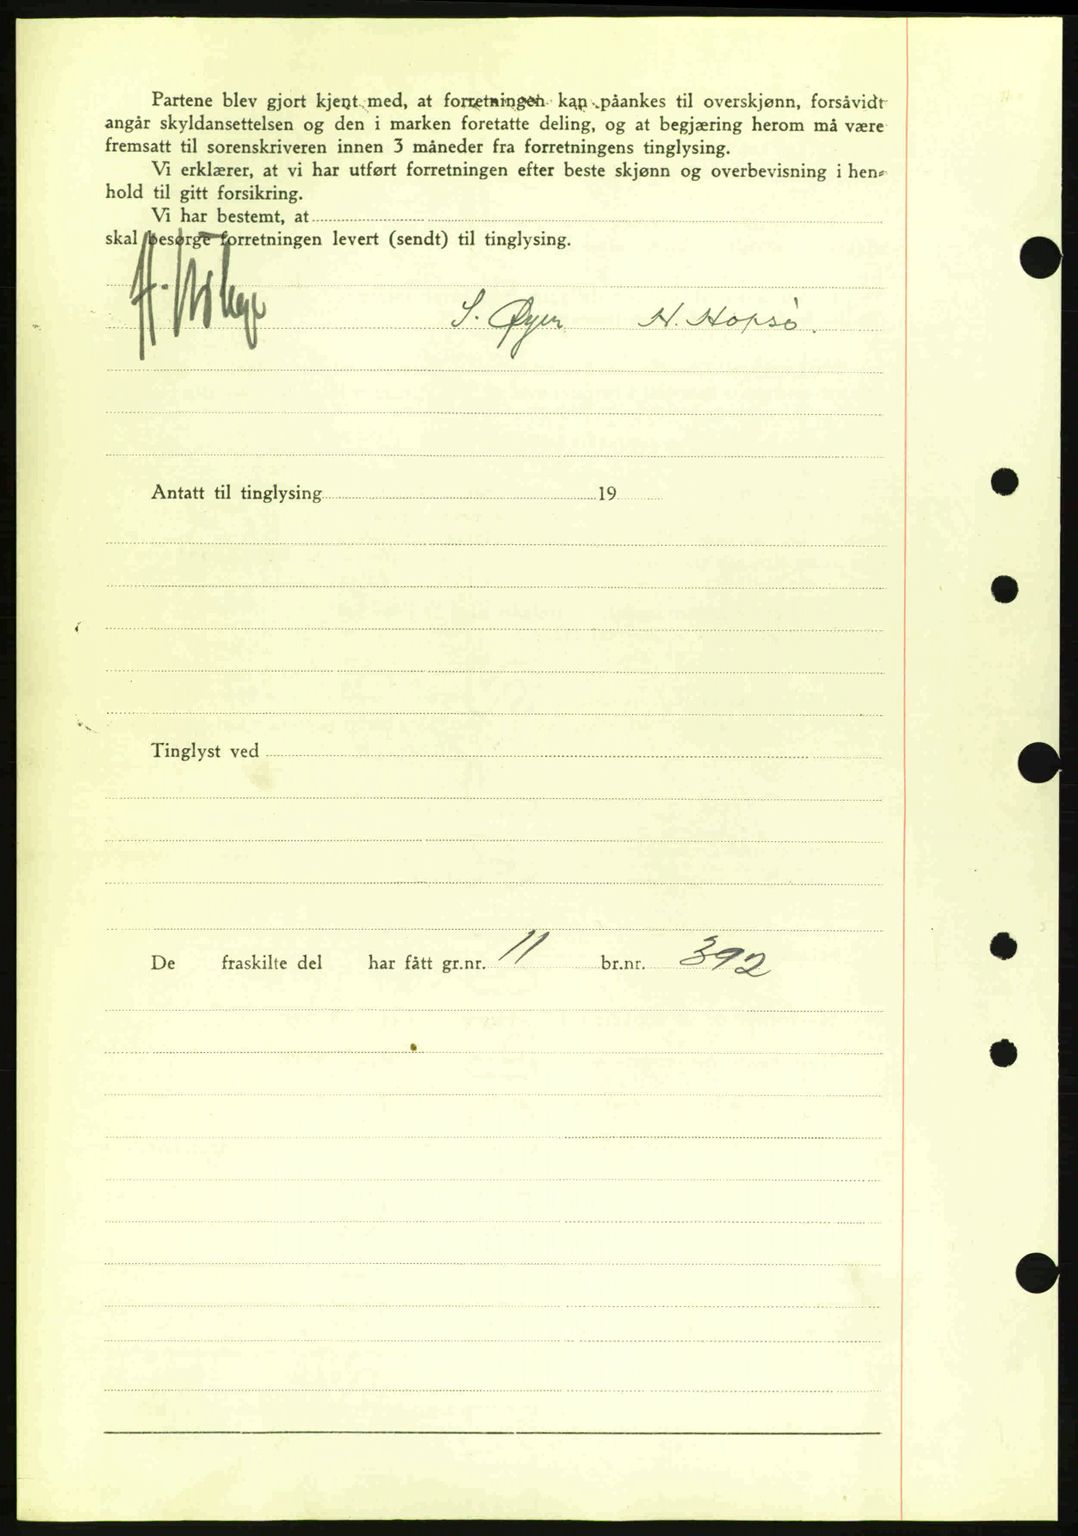 Partene blev gjort kjent med, at forretningen kan påankes til overskjønn, forsåvidt
angår skyldansettelsen og den i marken foretatte deling, og at begjæring herom må være
fremsatt til sorenskriveren innen 3 måneder fra forretningens tinglysing.
Vi erklærer, at vi har utført forretningen efter beste skjønn og overbevisning i hen-
hold til gitt forsikring.
Vi har bestemt, at
skal besørge forretningen levert (sendt) til tinglysing.
S. Øyen H. Hopsø.
Antatt til tinglysing 19
Tinglyst ved
De fraskilte del har fått gr.nr. 11 br.nr. 392